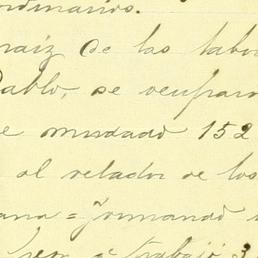 ordinarios.
raiz de las labor
Pablo, se ocuparon
mudado 152
al velador de los
ana = Formando
de trabajo 3